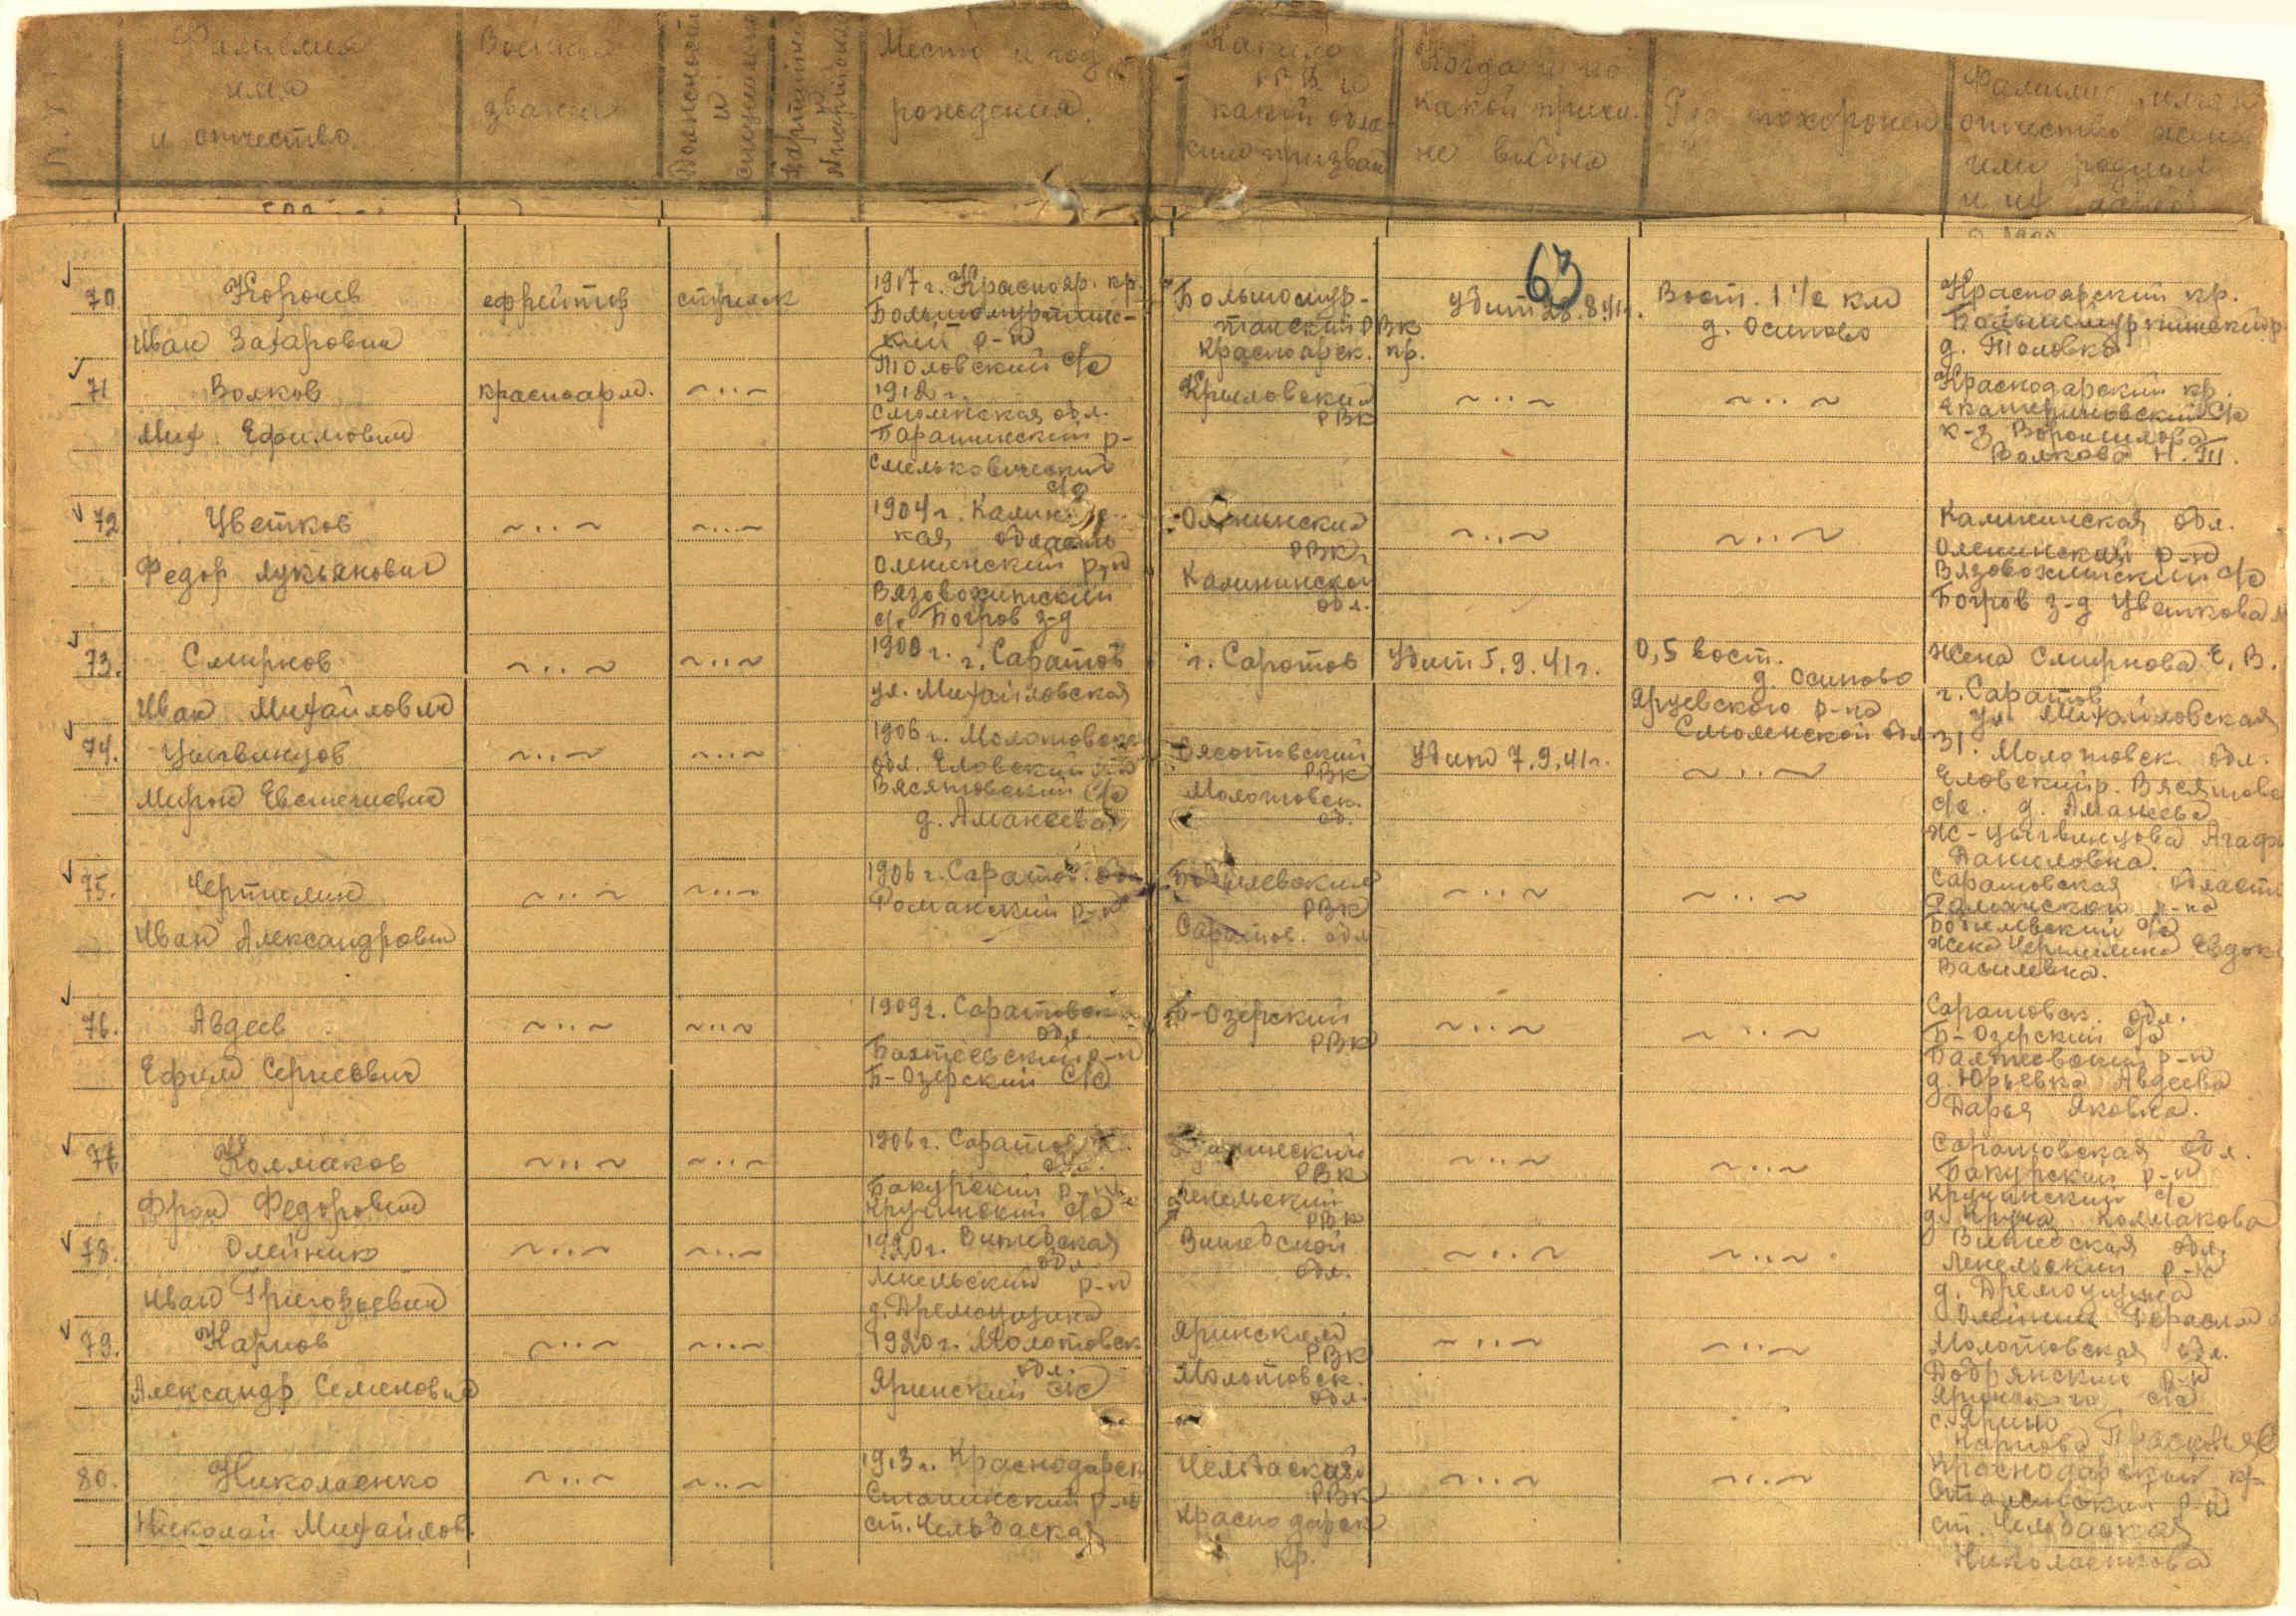 Фамилия имя и отчество
Военное звание
Должность и специальность
Партийность
Место и год рождения.
Каким РВК и какой области призван
Когда и по какой причине выбыл
Где похоронен
Фамилия, имя и отчество жены или родных и их адрес
63
70 Корочев
Иван Захарович
ефрейтор
стрелок
1917 г. Краснояр. кр.
Большемуртинс-
кий р-н
Тюловский с/с
Большемур-
тинский РВК
Красноярск. кр.
Убит 28.8.41г.
Вост. 1 1/2 км
д. Осипово
Красноярский кр.
Большемуртинский р
д. Тюловка
71 Волков
Мих. Ефимович
красноарм.
~..~
1912 г.
Смоленская обл.
р-
с/с
Крыловский
РВК
~..~
~..~
Краснодарский кр.
Екатериновский с/с
к-з Ворошилова
Волкова Н.Т.
72 Цветков
Федор Лукьянович
~..~
~..~
1904 г.
кая область
Оленинский р-н
с/с Богров з-д
Оленинский
РВК
Калининской
обл.
~..~
~..~
Калининская обл.
Оленинский р-н
с/с
Богров з-д Цветкова
73. Смирнов
Иван Михайлович
~..~
~..~
1900 г. г. Саратов
ул. Михайловская
г. Саратов
Убит 5.9.41г.
0,5 вост.
д. Осипово
Ярцевского р-на
Смоленской обл
Жена Смирнова Е.В.
г. Саратов
ул Михайловская
31.
74. Цыгвинцов
Мирон Евстегневич
~..~
~..~
1906 г. Молотовск
обл. Еловский
Вясятовский с/с
д. Аманеева
РВК
Молотовск.
об.
Убит 7.9.41г.
~..~
Молотовск. обл.
Еловский р.
с/с. д. Аманеева
ж-Цыгвинцова
Даниловна.
75. Чертилин
Иван Александрович
~..~
~..~
1906 г. Саратов.
Романский р-н
РВК
Саратов. обл
~..~
~..~
Саратовская област
р-на
с/с
Жена Чертилина Евдок
Василевна.
76. Авдеев
Ефим Сергеевич
~..~
~..~
1909 г. Саратовск
обл.
Балтеевский р-н
Б-Озерский с/с
Б-Озерский
РВК
~..~
~..~
Саратовск. обл.
Б-Озерский с/с
Балтеевский р-н
д. Юрьевка Авдеева
Дарья Яковна.
77 Колмаков
Фрол Федорович
~..~
~..~
1906 г. Саратовск.
обл.
Бакурский р-н
Кручинский с/с
РВК
~..~
~..~
Саратовская обл.
Бакурский р-н
Кручинский с/с
д. Круча Колмакова
78. Олейник
Иван Григорьевич
~..~
~..~
1920 г. Витебская
обл
Лепельский р-н
д.
Лепельский
РВК
Витебской
обл.
~..~
~..~
Витебская обл.
Лепельский р-н
д.
Олейник Герасим
79. Карпов
Александр Семенович
~..~
~..~
1920 г. Молотовск
обл.
Яринский с/с
Яринский
РВК
Молотовск.
обл.
~..~
~..~
Молотовская обл.
Добрянский р-н
Яринского с/с
с. Ярино
Карпова Прасковья
80. Николаенко
Николай Михайлов.
~..~
~..~
1913 г. Краснодарск
Сталинский р-н
ст. Челбаская
Челбаский
РВК
Краснодарск
кр.
~..~
~..~
Краснодарский кр.
Сталинский р-н
ст. Челбаская
Николаенкова